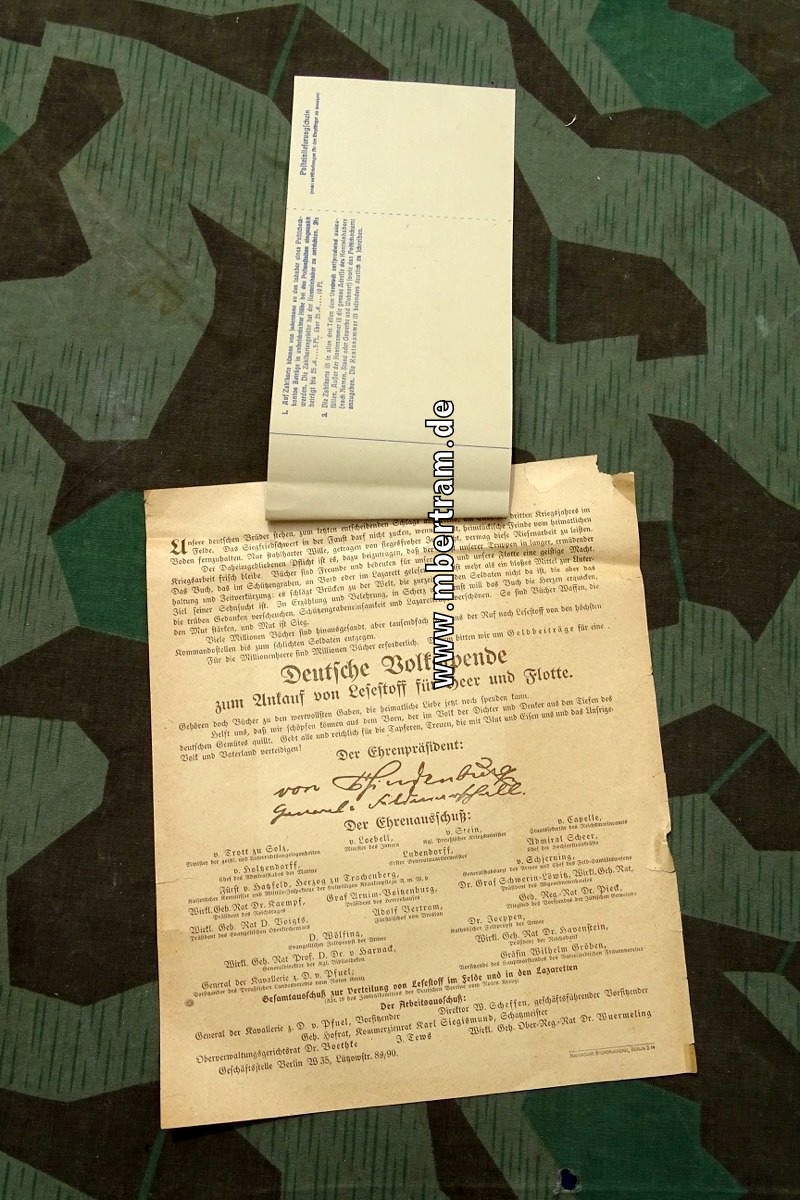 Posteinlieferungsschein
1. Auf Zahlkarte können von jedermann an den Inhaber eines Postscheck-
kontos Beträge in unbeschränkter Höhe bei den Postanstalten eingezahlt
werden. Die Zahlkartengebühr hat der Kontoinhaber zu entrichten. Sie
beträgt bis 25 M.....5 Pf., über 25 M.....10 Pf.
2. Die Zahlkarte ist in allen drei Teilen dem Vordruck entsprechend auszu-
füllen. Außer der Kontonummer ist die genaue Adresse des Kontoinhabers
(nach Namen, Stand oder Gewerbe und Wohnort) sowie das Postscheckamt
anzugeben. Die Kontonummer ist besonders deutlich zu schreiben.
www.mbertram.de
Unsere deutschen Brüder stehen, zum letzten entscheidenden Schlage dritten Kriegsjahres im
Felde. Das Siegfriedschwert in der Faust darf nicht zucken, wenn heimtückische Feinde vom heimatlichen
Boden fernzuhalten. Nur stahlharter Wille, getragen von siegesfroher vermag diese Riesenarbeit zu leisten.
Der Daheimgebliebenen Pflicht ist es, dazu beizutragen, daß der unserer Truppen in langer, ermüdender
Kriegsarbeit frisch bleibe. Bücher sind Freunde und bedeuten für unser und unsere Flotte eine geistige Macht.
Das Buch, das im Schützengraben, an Bord oder im Lazarett gelesen ist mehr als ein bloßes Mittel zur Unter-
haltung und Zeitverkürzung: es schlägt Brücken zu der Welt, die zurzeit den Soldaten nicht da ist, die aber das
Ziel seiner Sehnsucht ist. In Erzählung und Belehrung, in Scherz will das Buch die Herzen erquicken,
die trüben Gedanken verscheuchen, Schützengrabeneinsamkeit und Lazarett verschönen. So sind Bücher Waffen, die
den Mut stärken, und Mut ist Sieg.
Viele Millionen Bücher sind hinausgesandt, aber tausendfach uns der Ruf nach Lesestoff von den höchsten
Kommandostellen bis zum schlichten Soldaten entgegen.
Für die Millionenheere sind Millionen Bücher erforderlich. bitten wir um Geldbeiträge für eine
Deutsche Volksspende
zum Ankauf von Lesestoff für Heer und Flotte.
Gehören doch Bücher zu den wertvollsten Gaben, die heimatliche Liebe jetzt noch spenden kann.
Helft uns, daß wir schöpfen können aus dem Born, der im Volk der Dichter und Denker aus den Tiefen des
deutschen Gemütes quillt. Gebt alle und reichlich für die Tapferen, Treuen, die mit Blut und Eisen uns und das Unsrige,
Volk und Vaterland verteidigen!
Der Ehrenpräsident:
von Hindenburg
Generalfeldmarschall.
Der Ehrenausschuß:
v. Trott zu Solz, v. Loebell, v. Stein, v. Capelle,
Minister der geistl. und Unterrichtsangelegenheiten Minister des Innern Kgl. Preußischer Kriegsminister Staatssekretär des Reichsmarineamtes
v. Holtzendorff, Ludendorff, Admiral Scheer,
Chef des Admiralstabes der Marine Erster Generalquartiermeister Chef der Hochseestreitkräfte
Fürst v. Hatzfeld, Herzog zu Trachenberg, v. Schjerning,
Wirkl. Geh. Rat Dr. Kaempf, Graf Arnim-Boitzenburg, Dr. Graf Schwerin-Löwitz, Wirkl. Geh. Rat,
Präsident des Reichstages Präsident des Herrenhauses Präsident des Abgeordnetenhauses
Wirkl. Geh. Rat D. Voigts, Adolf Bertram, Geh. Reg.-Rat Dr. Pieck,
Präsident des Evangelischen Oberkirchenrats Fürstbischof von Breslau
D. Wölfing, Dr. Joeppen,
Evangelischer Feldpropst der Armee Katholischer Feldpropst der Armee
Wirkl. Geh. Rat Prof. D. Dr. v. Harnack, Wirkl. Geh. Rat Dr. Havenstein,
Generaldirektor der Kgl. Bibliotheken Präsident der Reichsbank
General der Kavallerie z. D. v. Pfuel, Gräfin Wilhelm Gröben,
Vorsitzender des Preußischen Landesvereins vom Roten Kreuz
Gesamtausschuß zur Verteilung von Lesestoff im Felde und in den Lazaretten
Der Arbeitsausschuß:
General der Kavallerie z. D. v. Pfuel, Vorsitzender Direktor W. Scheffen, geschäftsführender Vorsitzender
Geh. Hofrat, Kommerzienrat Karl Siegismund, Schatzmeister
Oberverwaltungsgerichtsrat Dr. Boethke J. Tews Wirkl. Geh. Ober-Reg.-Rat Dr. Wuermeling
Geschäftsstelle Berlin W 35, Lützowstr. 89/90.